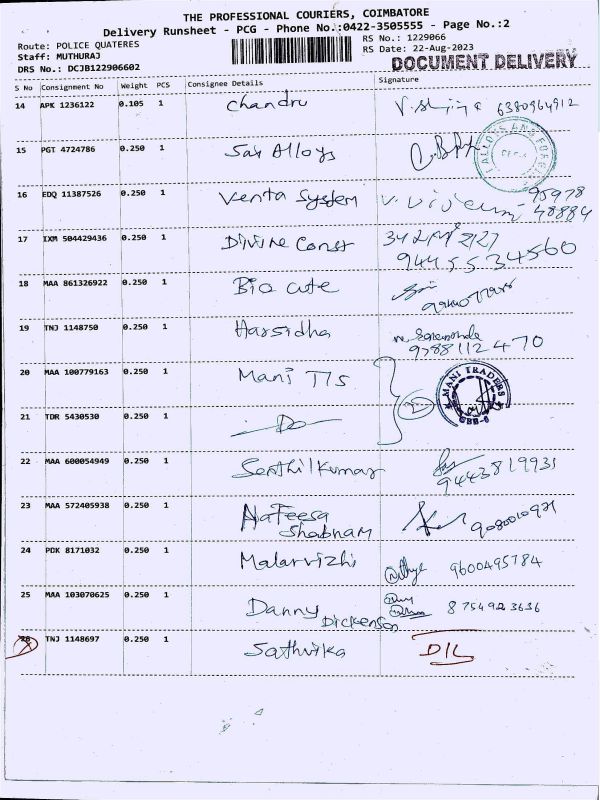 THE PROFESSIONAL COURIERS, COIMBATORE
Delivery Runsheet - PCG - Phone No.:0422-3505555 - Page No.:2
Route: POLICE QUATERES
RS No.: 1229066
Staff: MUTHURAJ
RS Date: 22-Aug-2023
DRS No.: DCJB122906602
DOCUMENT DELIVERY
S No Consignment No Weight PCS Consignee Details Signature
14 APK 1236122 0.105 1 Chandru 6380964912
15 PGT 4724786 0.250 1 Sai Alloys
16 EDQ 11387526 0.250 1 Venta System 95978
48884
17 IXM 504429436 0.250 1 Divine Const
9445534560
18 MAA 861326922 0.250 1 Bio cute
19 TNJ 1148750 0.250 1 Harsidha
9788112470
20 MAA 100779163 0.250 1 Mani T/s MANI TRADERS
21 TDR 5430530 0.250 1 Do 2
22 MAA 600054949 0.250 1 Senthil Kumar
9443819931
23 MAA 572405938 0.250 1 Nafeesa
Shabnam
24 PDK 8171032 0.250 1 Malarvizhi 9600495784
25 MAA 103070625 0.250 1 Danny
Dickenson 8754923636
26 TNJ 1148697 0.250 1 Sathvika D/L